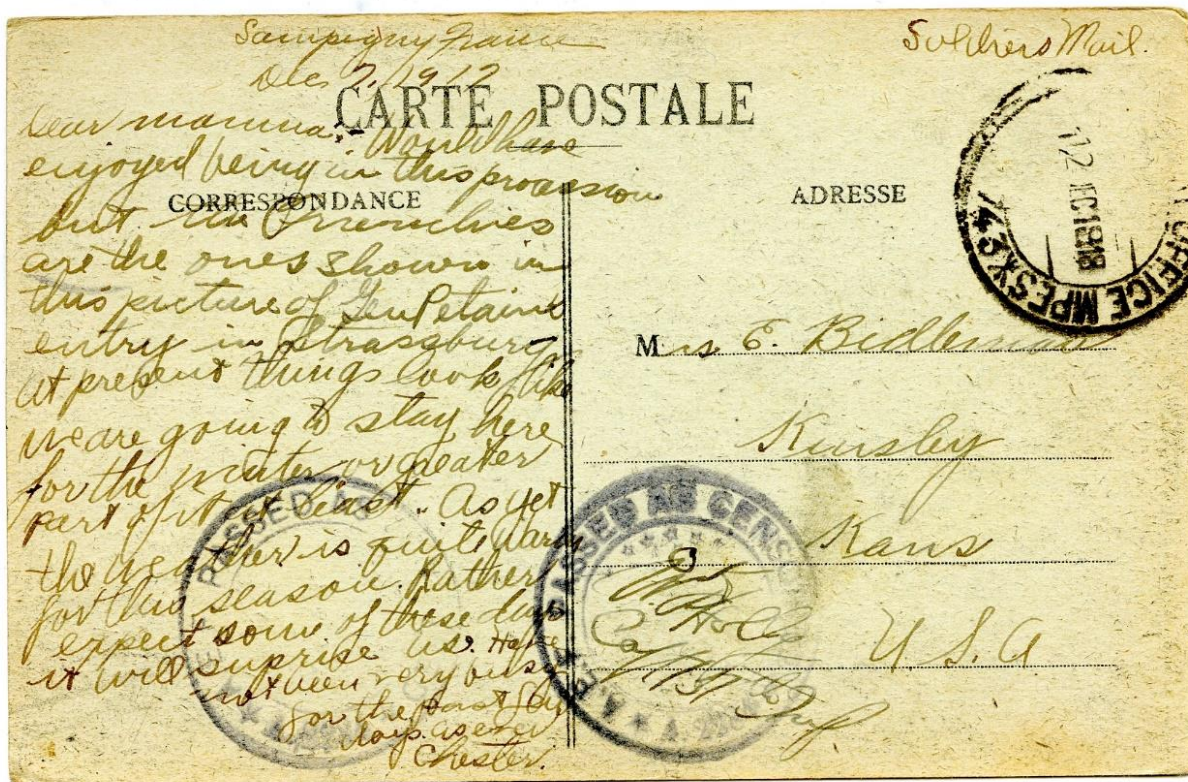 Sampigny France
Dec 7, 1912
Soldiers Mail.
CARTE POSTALE
Dear mamma:- Would have
enjoyed being in this procession
CORRESPONDANCE
but the Frenchies
are the ones shown in
this picture of Gen Petains
entry in Strassburg
At present things look like
we are going to stay here
for the winter or greater
part of it at least. As yet
the weather is quite warm
for this season. Rather
expect some of these days
it will suprise us. Have
not been very busy
for the past few
days. as ever
Chester.
ADRESSE
Mrs E. Bidleman
Kinsley
Kans
U.S.A
OFFICE MPES * 743
12 DEC 1918
PASSED AS
PASSED AS CENSORED
A.E.F.
Holly
Inf